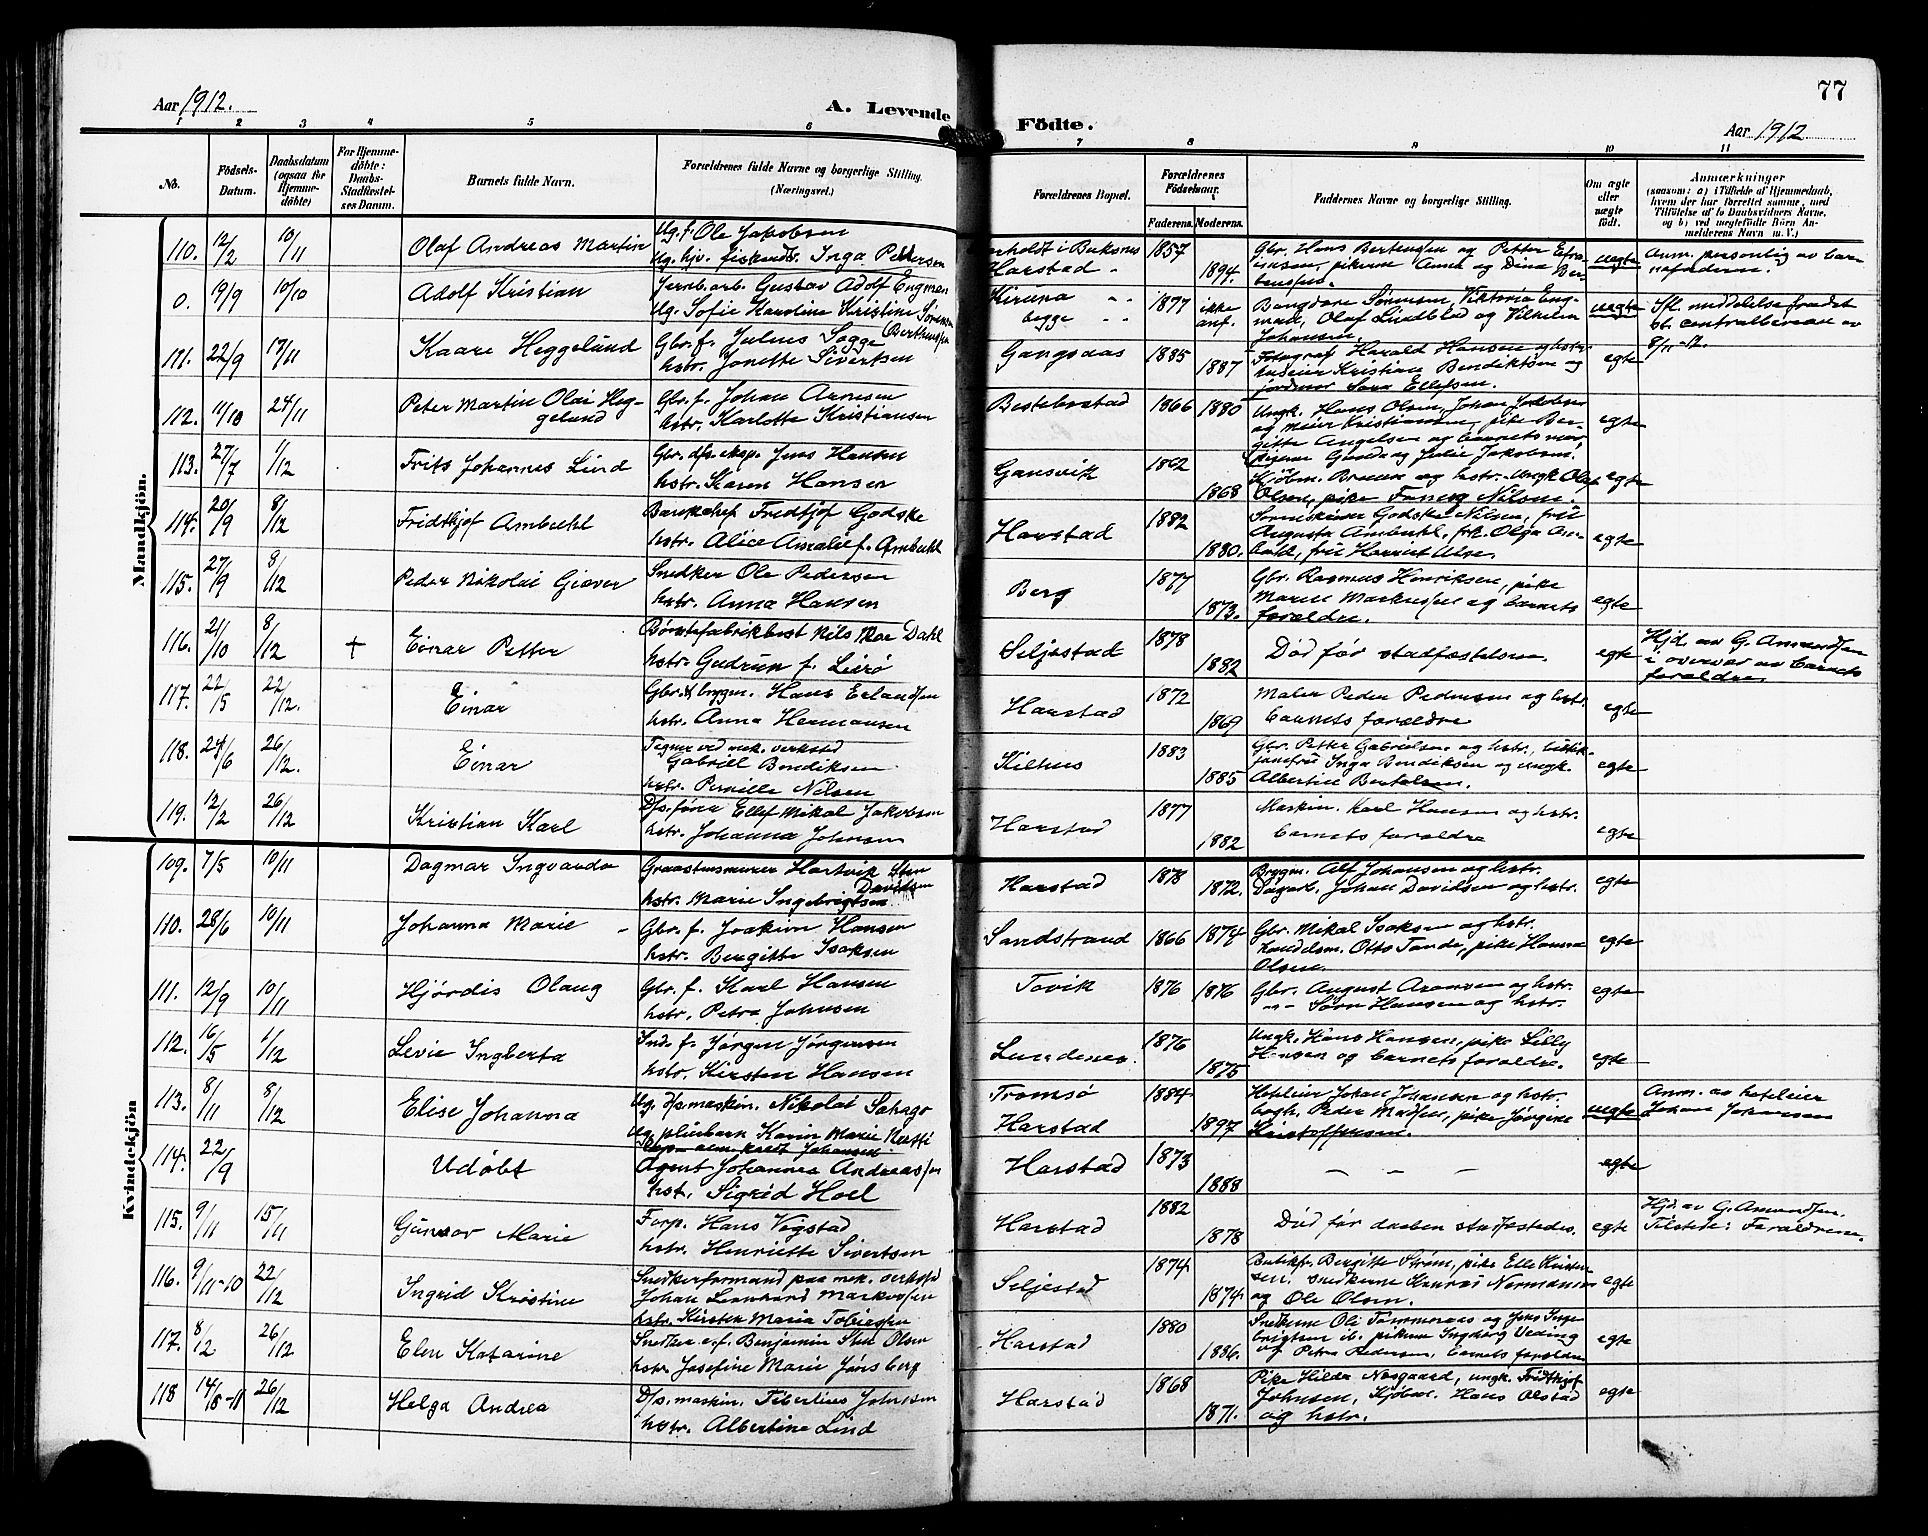 77
Aar 1912.
A. Levende Födte.
Aar 1912
1 2 3 4 5 6 7 8 9 10 11
No.
Födsels-Datum.
Daabsdatum (ogsaa for Hjemme-döbte)
For Hjemme-döbte: Daabs-Stadfæstel-ses Datum.
Barnets fulde Navn.
Forældrenes fulde Navne og borgerlige Stilling. (Næringsvei.)
Forældrenes Bopæl.
Forældrenes Födselsaar.
Faderens. Moderens.
Faddernes Navne og borgerlige Stilling.
Om ægte eller uægte født.
Anmærkninger
(saasom: a) i Tilfælde af Hjemmedaab, hvem der har forrettet samme, med Tilföielse af to Daabsvidners Navne, og b) ved uægtefödte Börn Anmelderens Navn m. V.)
Mandkjön.
110. 12/2 10/11 Olaf Andreas Martin
Ug. f. Ole Jakobsen
Ug. hjv. Inga Pettersen
Harstad
1857 1894.
Gbr. Hans Bertenssen og Petter pikerne Anna og Dina
uegte
Anm. personlig av barnefaderen.
0. 19/9 10/10 Adolf Kristian
Jernb. arb. Gustav Adolf Engman
Ug. Sofie Hardine Kristine Sørensen
Kiruna
begge
1877 ikke anf.
Sørensen, Viktoria Engman, Olaf Lindblad og Vilhelm Johansen.
uegte
111. 22/9 17/11 Kaare Heggelund
Gbr. f. Julius Sogge
hstr. Jonette Sivertsen
Gangsaas
1885 1887
Fotograf Harald Hansen Kristian Bendiktsen og jordmor Sara Ellefsen.
egte
112. 11/10 24/11 Peter Martin Olai Heggelund
Gbr. f. Johan Arnesen
hstr. Karlotte Kristiansen
1866 1880
Ungk. Hans Olsen, Johan Jakobsen og Meier Kristiansen, pike Bergitte Angelsen og barnets mor
egte
113. 27/7 1/12 Frits Johannes Lind
Gbr. d/s. eksp. Jens Hansen
hstr. Karen Hansen
Gansvik
1862 1868
Kjøbm. Bruun og hstr. Ungk. Olaf Olsen, pike Fanny Nilsen.
egte
114. 20/9 8/12 Fridthjof Ambühl
Bankchef Fridtjof Godske
hstr. Alice Amalie f. Ambühl
Harstad
1882 1880.
Godske Nilsen, frü Augusta Ambühl, frk. Olga Ambühl, frü Harriet
egte
115. 27/9 8/12 Peder Nikolai Giæver
Snedker Ole Pedersen
hstr. Anna Hansen
Berg
1877 1873.
Gbr. Rasmus Henriksen, pike Marie Markussen og barnets forældre.
egte
116. 21/10 8/12 + Einar Petter
Nils Dahl
hstr. Gudrun f. Lerø
Seljestad
1878 1882
Død før stadfæstelsen.
egte
Hjd. av G. Amundsen i overvær av barnets forældre
117. 22/5 22/12. Einar
Hans Erlandsen
hstr. Anna Hermansen
Harstad
1872 1869
Maler Peder Pedersen og hstr. barnets forældre
egte
118. 24/6 26/12. Einar
Tegner ved mek. verksted
Gabriell Bendiksen
hstr. Pernille Nilsen
Kilhus
1883 1885
Gbr. Petter Gabrielsen og hstr., Inga Bendiksen og ungk. Albertin Bertelsen.
egte
119. 12/2 26/12 Kristian Karl
D/s. fører Ellef Mikal Jakobsen
hstr. Johanna Johnsen
Harstad
1877 1882
Maskin. Karl Hansen og hstr. barnets forældre
egte
Kvindekjön
109. 7/5 10/11 Dagmar Ingvarda
Graastensmurer Hartvik Davidsen
hstr. Marie Ingebrigtsen
Harstad
1878 1872.
Bryggm. Alf Johansen og hstr. Dagarb. Johan Davidsen og hstr.
egte
110. 28/6 10/11 Johanna Marie
Gbr. f. Joakim Hansen
hstr. Bergitte Isaksen
Sandstrand
1866 1874
Gbr. Mikal Isaksen og hstr. Handelsm. Otto Tande, pike Hanna Olsen.
egte
111. 12/9 10/11 Hjørdis Olaug
Gbr. f. Karl Hansen
hstr. Petra Johnsen
Tovik
1876 1876
Gbr. August Aronsen og hstr.
-"- Sørn Hansen og hstr.
egte
112. 16/5 1/12 Levie Ingberta
Inds. f. Jørgen Jørgensen
hstr. Kirsten Hansen
Lundenes
1876 1875
Ungk. Hans Hansen, pike Lilly Hansen og barnets forældre.
egte
113. 8/11 8/12 Elise Johanna
Ug. d/s maskin. Nikolai Schage
Karin Marie
Johansen
Tromsø
Harstad
1884 1897
Johan Johansen og hstr. Peder Madsen, pike Jørgine Kristoffersen.
uegte
Anm. av Johan Johansen
114. 22/9 Udøbt
Agent Johannes Andreassen
hst. Sigrid Hoel
Harstad
1873 1888
– – –
egte
115. 9/11 15/11 Gunvor Marie
Forp. Hans Vigstad
hstr. Henriette Sivertsen
Harstad
1882 1878
Død før daaben stadfæstedes.
egte
Hjd. av G. Amundsen. Tilstede: Forældrene.
116. 9/11-10 22/12 Ingrid Kristine
Snedkerformand paa mek. verksted
Johan Leonhard Markussen
hstr. Kirsten Maria Tobiassen
Seljestad
1874 1874
Bergitte Strøm, pike Elle snedkerne Normann og Ole Olsen.
egte
117. 8/2 26/12 Elen Katarine
Snedker Benjamin Olsen
hstr. Josefine Marie Jensberg
Harstad
1880 1886.
Snedkerne Ole og Jens Ingebrigtsen, pikerne Ingeborg og Petra Pedersen, barnets forældre
egte
118 14/8-11 26/12 Helga Andrea
D/s. maskin. Tibertines Johnsen
hstr. Albertine Lind
Harstad
1868 1871.
Pike Hilda Nesgaard, ungk. Fridthjof Johnsen, Kjøbm. Hans Olstad og hstr.
egte